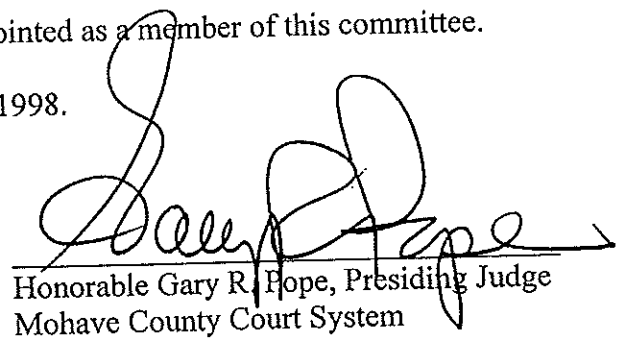 ointed as a member of this committee.
1998.
Gary R Pope
Honorable Gary R. Pope, Presiding Judge
Mohave County Court System